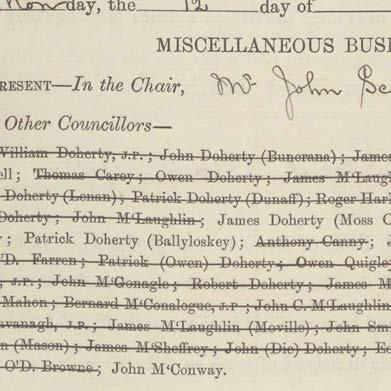 Monday, the 12 day of
MISCELLANEOUS BUSI
RESENT—In the Chair, Mr John
Other Councillors—
William Doherty, J.P.; John Doherty (Buncrana); James
ell; Thomas Carey; Owen Doherty; James M'Laugh
Doherty (Lenan); Patrick Doherty (Dunaff); Roger Har
Doherty; John M'Laughlin; James Doherty (Moss
; Patrick Doherty (Ballyloskey); Anthony Canny; J
O'D. Farren; Patrick (Owen) Doherty; Owen Quigle
, J.P.; John M'Gonagle; Robert Doherty; James M
Mahon; Bernard M'Conalogue, J.P; John C. M'Laughlin
avanagh, J.P.; James M'Laughlin (Moville); John Sm
n (Mason); James M'Sheffrey; John (Die) Doherty;
O'D. Browne; John M'Conway.